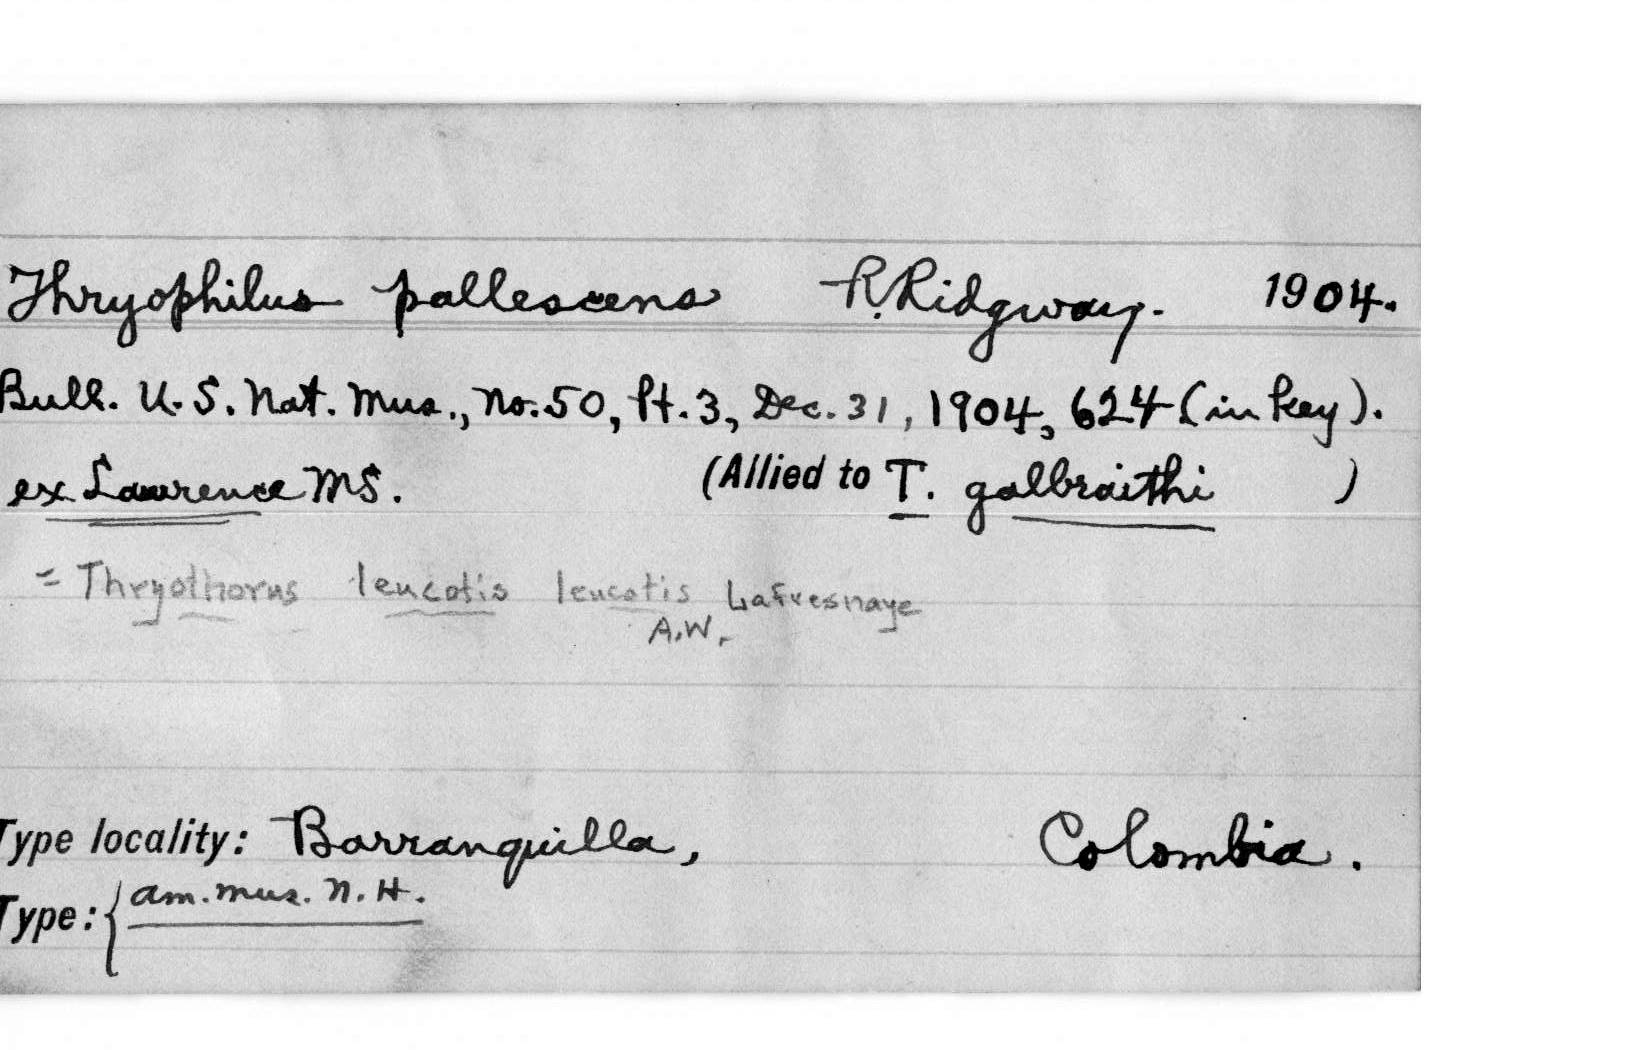 Thryophilus pallescens R. Ridgway. 1904.
Bull. U.S. Nat. Mus., No. 50, pt. 3, Dec. 31, 1904, 624 (in key).
ex Lawrence MS. (Allied to T. galbraithi )
= Thryothorus leucotis leucotis Lafresnaye
A.W.
Type locality: Barranquilla, Colombia.
Type: { Am. Mus. N. H.